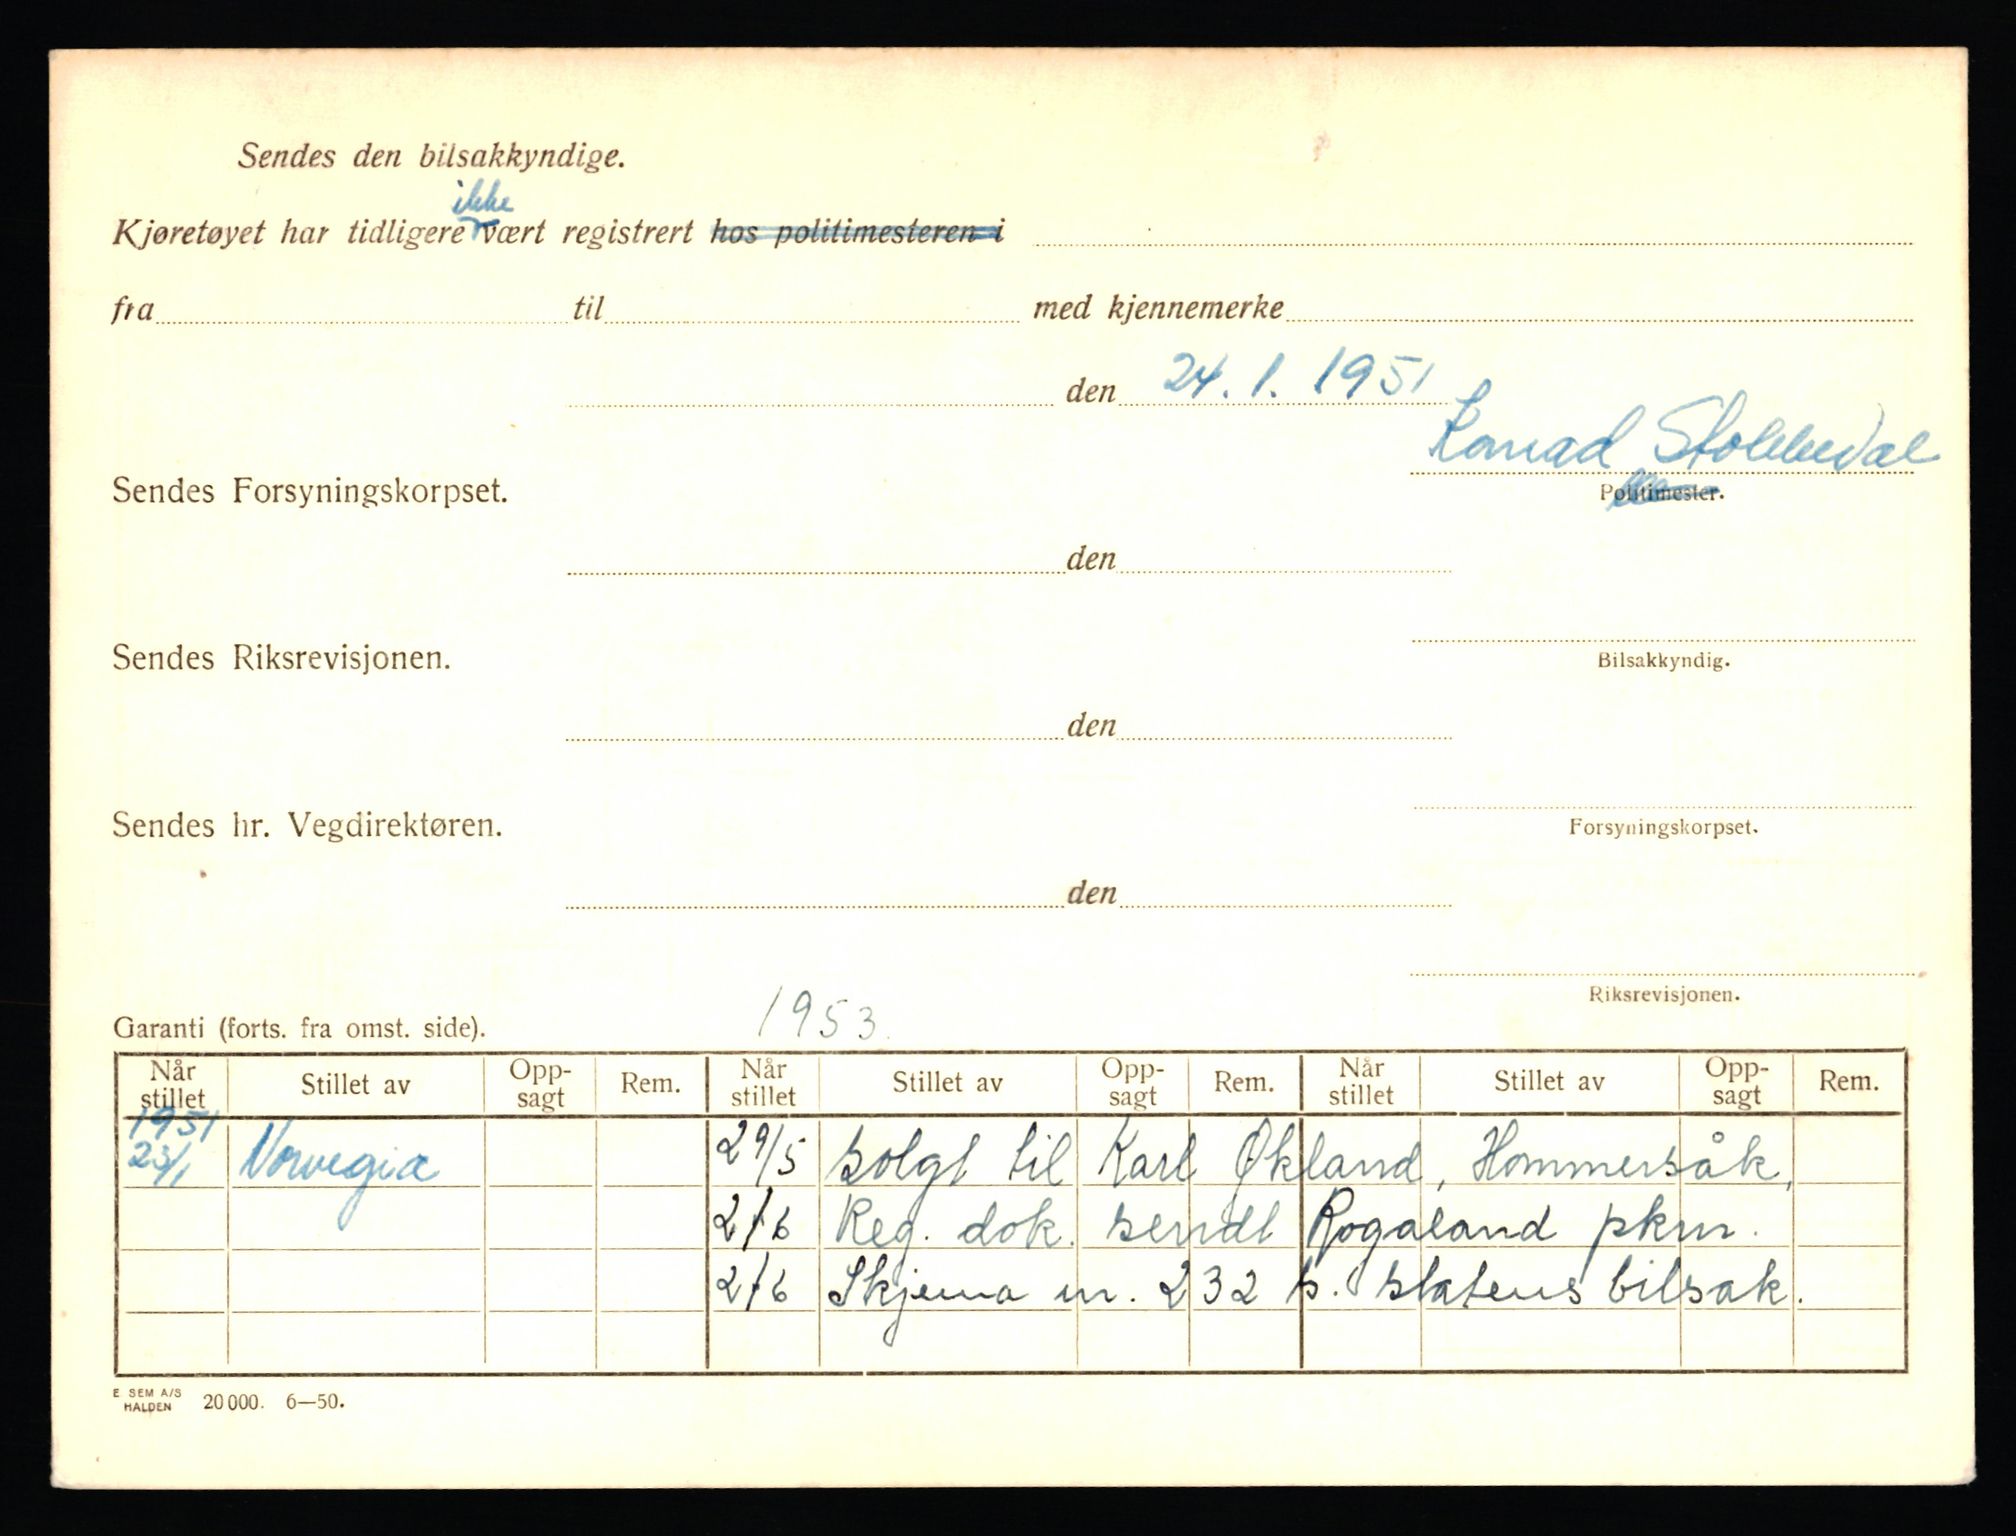 Sendes den bilsakkyndige.
ikke
Kjøretøyet har tidligere vært registrert hos politimesteren i
fra til med kjennemerke
den 24.1.1951
Konrad
Sendes Forsyningskorpset. Politimester.
den
Sendes Riksrevisjonen. Bilsakkyndig.
den
Sendes hr. Vegdirektøren. Forsyningskorpset.
den
Riksrevisjonen.
Garanti (forts. fra omst. side). 1953.
Når stillet Stillet av Opp-sagt Rem. Når stillet Stillet av Opp-sagt Rem. Når stillet Stillet av Opp-sagt Rem.
1951
23/1 Norvegia 29/5 solgt til Karl Økland, Hommersåk,
2/6 Reg. dok. sendt Rogaland pkm.
2/6 Skjema nr. 232 s. statens bilsak.
E. SEM A/S
HALDEN 20000. 6—50.